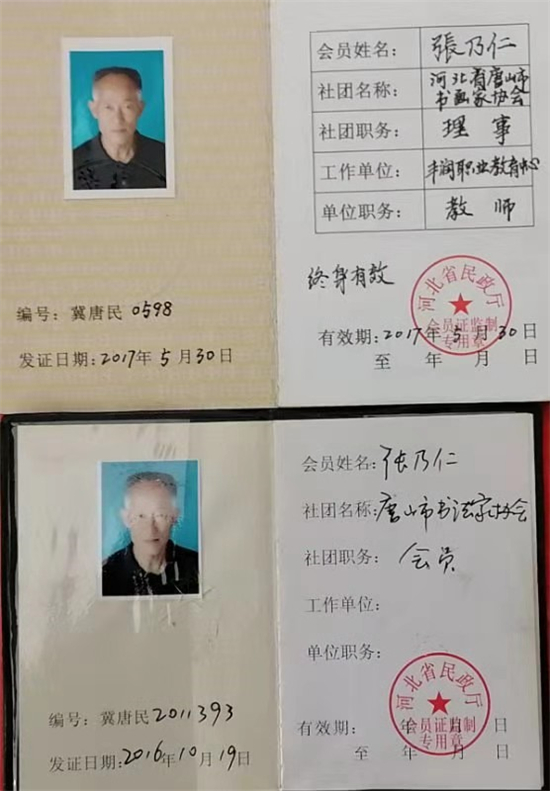 会员姓名：張乃仁
社团名称：河北省唐山市
书画家协会
社团职务：理事
工作单位：丰润职业教育中心
单位职务：教师
终身有效
河北省民政厅
会员证监制
专用章
编号：冀唐民0598
有效期：2017年5月30日
发证日期：2017年5月30日
至 年 月 日
会员姓名：张乃仁
社团名称：唐山市书法家协会
社团职务：会员
工作单位：
单位职务：
河北省民政厅
会员证监制
专用章
编号：冀唐民2011393
有效期： 年 月 日
发证日期：2016年10月19日
至 年 月 日